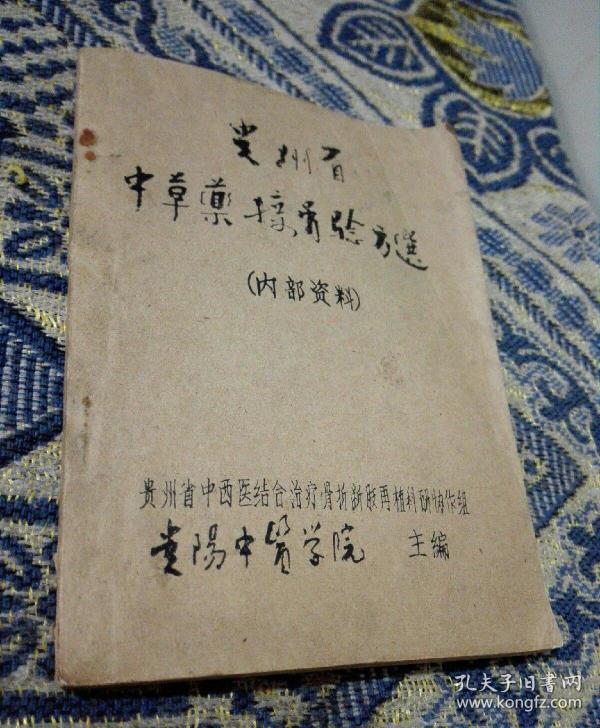 贵州省
中草藥接骨验方選
(内部资料)
贵州省中西医结合治疗骨折断肢再植科研协作组
贵陽中醫学院 主编
孔夫子旧书网
www.kongfz.com